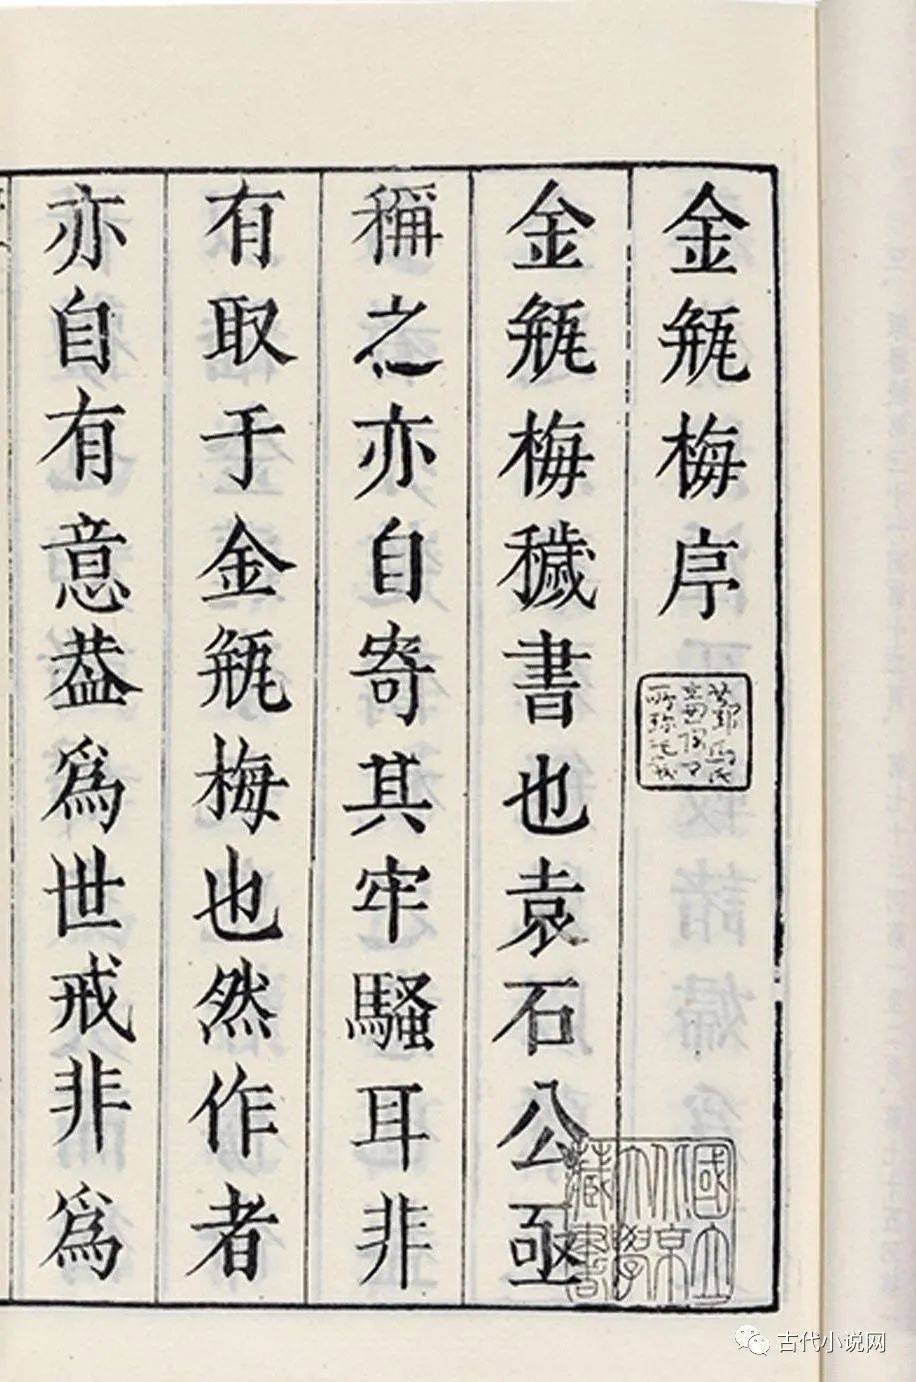 金瓶梅序
金瓶梅穢書也袁石公亟
稱之亦自寄其牢騷耳非
有取于金瓶梅也然作者
亦自有意葢爲世戒非爲
國立
北京
大學
藏書
古代小说网